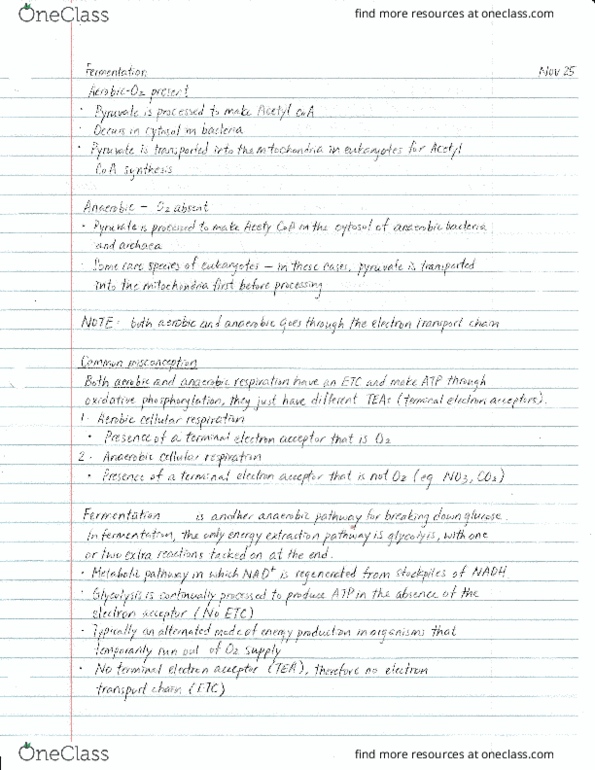 OneClass
find more resources at oneclass.com
Fermentation Nov 25
Aerobic - O2 present
· Pyruvate is processed to make Acetyl CoA
· Occurs in cytosol in bacteria
· Pyruvate is transported into the mitochondria in eukaryotes for Acetyl
CoA synthesis
Anaerobic - O2 absent
· Pyruvate is processed to make Acetyl CoA in the cytosol of anaerobic bacteria
and archaea
· Some rare species of eukaryotes - in these cases, pyruvate is transported
into the mitochondria first before processing
NOTE: both aerobic and anaerobic goes through the electron transport chain
Common misconception
Both aerobic and anaerobic respiration have an ETC and make ATP through
oxidative phosphorylation, they just have different TEAs (terminal electron acceptors).
1. Aerobic cellular respiration
• Presence of a terminal electron acceptor that is O2
2. Anaerobic cellular respiration
• Presence of a terminal electron acceptor that is not O2 (eg NO3, CO2)
Fermentation is another anaerobic pathway for breaking down glucose.
In fermentation, the only energy extraction pathway is glycolysis, with one
or two extra reactions tacked on at the end.
• Metabolic pathway in which NAD+ is regenerated from stockpiles of NADH
· Glycolysis is continually processed to produce ATP in the absence of the
electron acceptor (No ETC)
• Typically an alternated mode of energy production in organisms that
temporarily run out of O2 supply
• No terminal electron acceptor (TEA), therefore no electron
transport chain (ETC)
OneClass
find more resources at oneclass.com